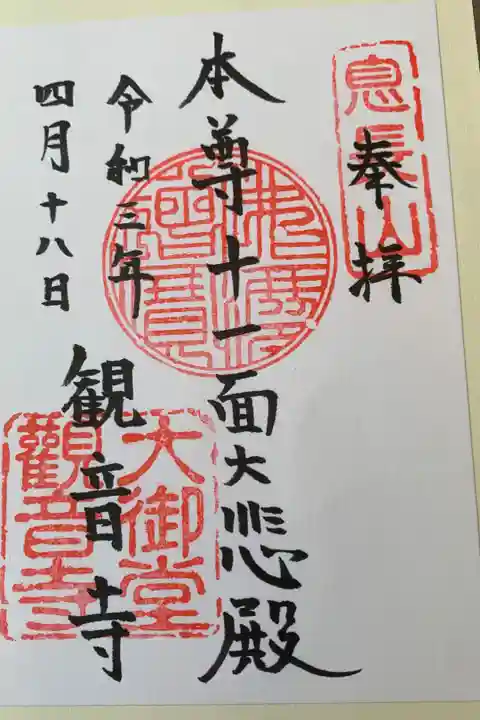 息長山
奉拝
本尊十一面大悲殿
佛法僧寶
令和三年
四月十八日
観音寺
大御堂
觀音寺